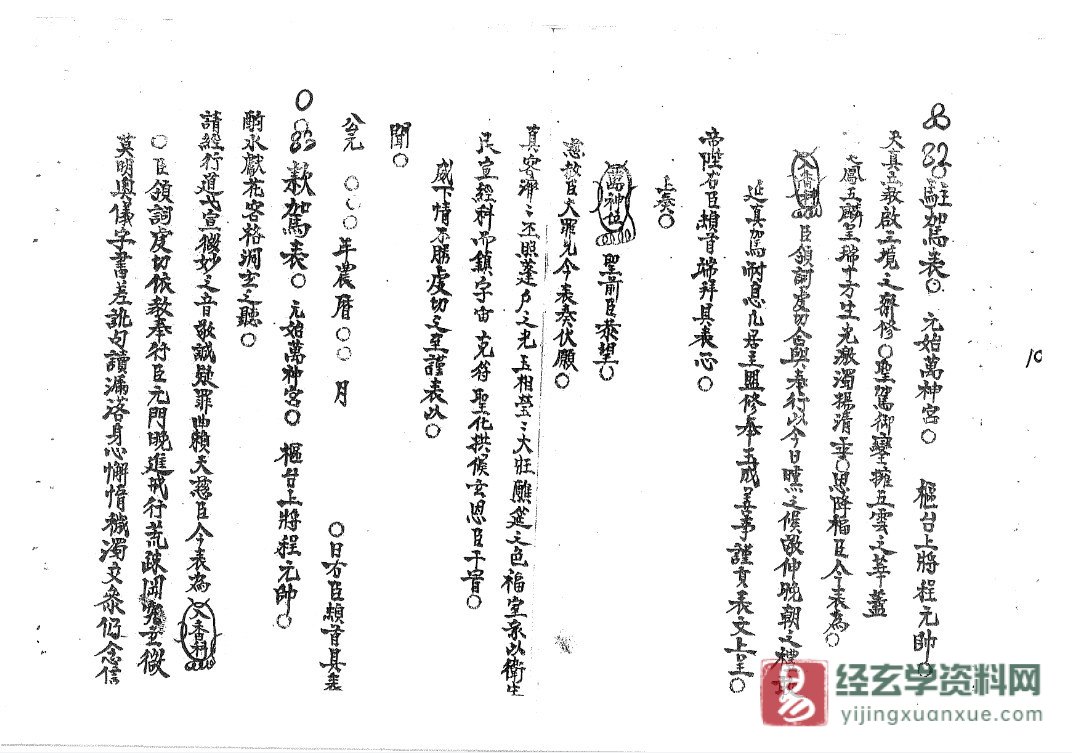 82 註駕表○ 元始萬神宮○ 樞台上將程元帥○
天真玄教啟三境之齋修○聖駕御鑾擁五雲之華蓋
七鳳五麟呈瑞十方生光激濁揚清季○恩降福臣今表為○
文香科 臣領詞虔切合與奉行以今日曛之候敬伸晚朝之禮
延真加馬耐息几居主盟修奉玉成善事謹具表文上呈○
帝陛右臣頓首端拜具表心○
上奏○
萬神位 聖前臣恭望○
憲赦臣大罪允今表奏伏願○
真容濟三丕照蓬戶之光玉相瑩三大壯醮筵之色福堂永以衛生
民宣經科而鎮字宙克符聖化拱候玄恩臣干冒○
威下情不勝虔切之至謹表以○
聞○
公元 ○○○年農曆○○月 ○日右臣頓首具表
83 款駕表○ 元始萬神宮○ 樞台上將程元帥○
酌水獻花容格洞玄之聽○
請經行道弌宣微妙之音敬誠疑罪曲賴天慈臣今表為 文香科
○臣領詞虔切依教奉行臣元門晚進戒行荒疎開 玄微
莫明奧儀字書差訛句讀漏落身心懈惰穢濁交參仍念信
10
易
经玄学资料网
yijingxuanxue.com